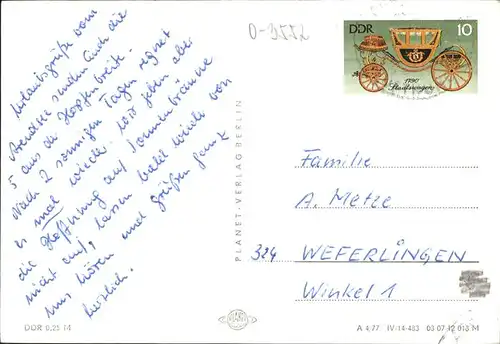 Urlaubsgrüße vom
Arendsee senden Euch die
5 aus der Hopfenbreite.
Nach 2 sonnigen Tagen regnet
es mal wieder. Wir geben aber
die Hoffnung auf Sonnenbräune
nicht auf, lassen bald wieder von
uns hören und grüßen ganz
herzlich.
PLANET-VERLAG BERLIN
DDR 0,25 M
PLANET
0-3572
DDR
10
1790
Staatswagen
Familie
A. Metze
324 WEFERLINGEN
Winkel 1
A 4/77 IV-14-483 03 07 12 013 M